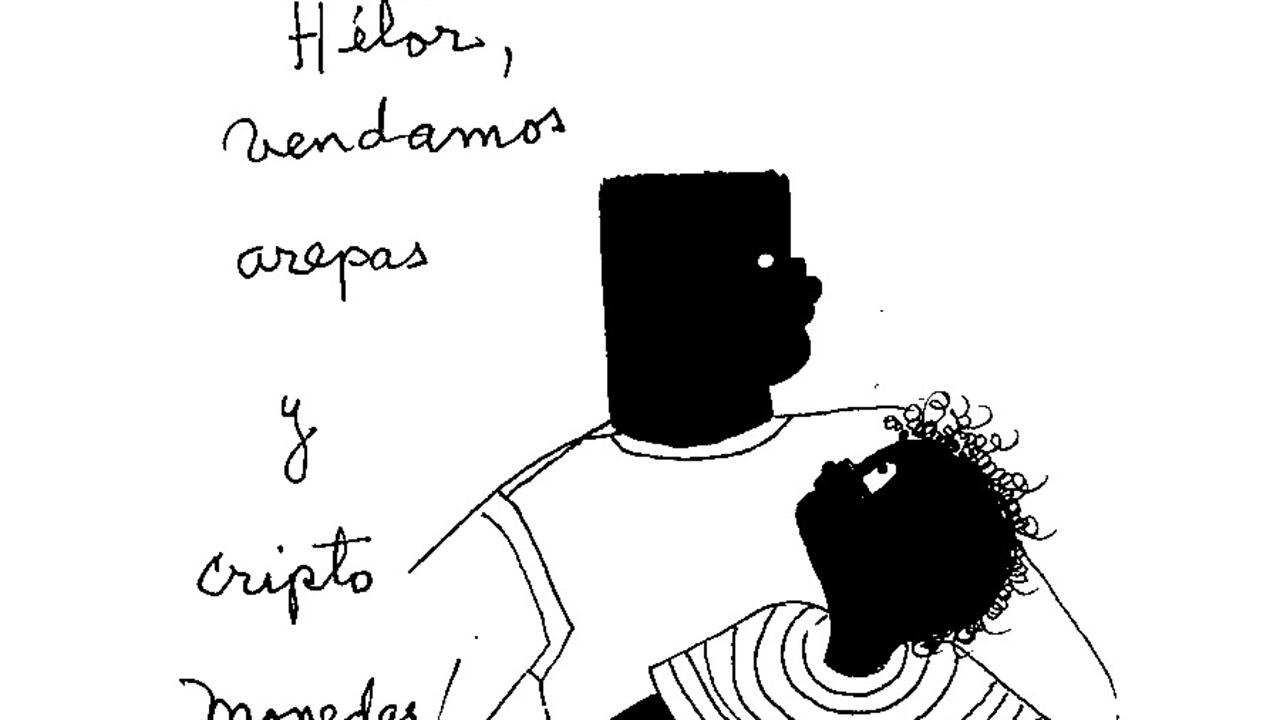 Hélor,
vendamos
arepas
y
cripto
monedas